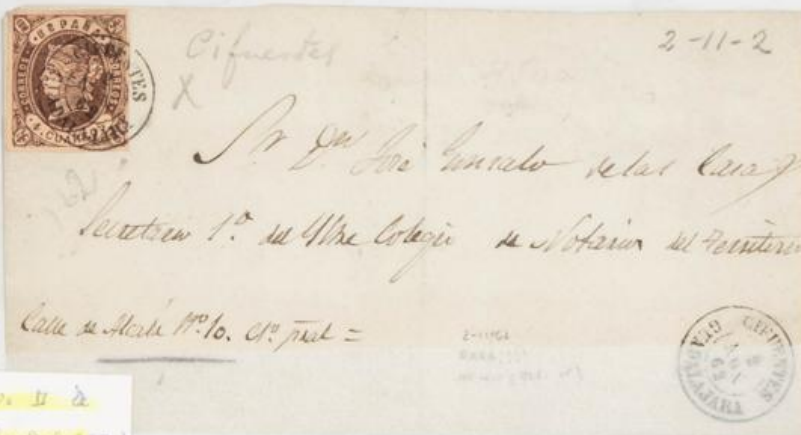 CORREOS ESPAÑA CORREOS
4 CUARTOS
CIFUENTES
Cifuentes
X
2-11-2
Sr Dn José Gonzalo de las Casas
Secretrio 1º del Yltre Colegio de Notarios del Territorio
Calle de Alcalá Nº 10. Cto pral =
CIFUENTES
GUADALAJARA